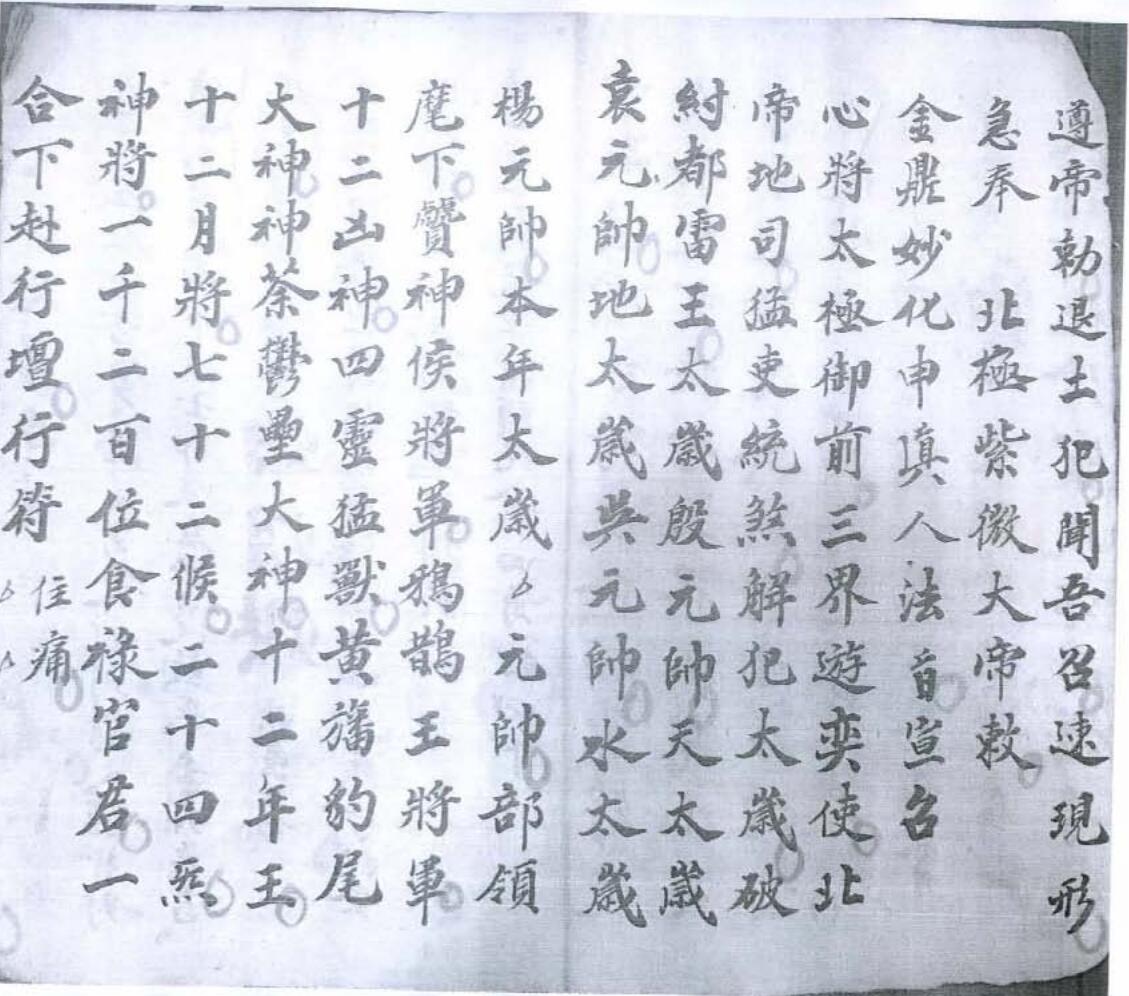 遵帝勅退土犯聞吾召速現形
急奉 北極紫微大帝敕
金鼎妙化申真人 法旨宣召
心將太極御前三界遊奕使北
帝地司猛吏統煞解犯太歲破
紂都雷王太歲殷元帥天太歲
袁元帥地太歲吳元帥水太歲
楊元帥本年太歲 元帥部領
麾下贊神侯將軍鴉鵲王將軍
十二凶神四靈猛獸黃旛豹尾
大神神荼鬱壘大神十二年王
十二月將七十二候二十四炁
神將一千二百位食祿官君一
合下赴行壇行符 住痛